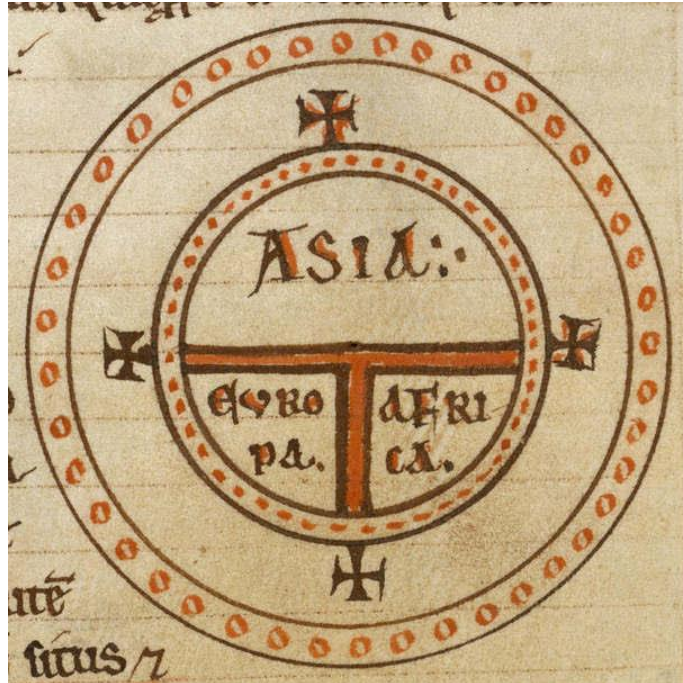 ASIA:·
EVRO
PA.
AFRI
CA.
situs